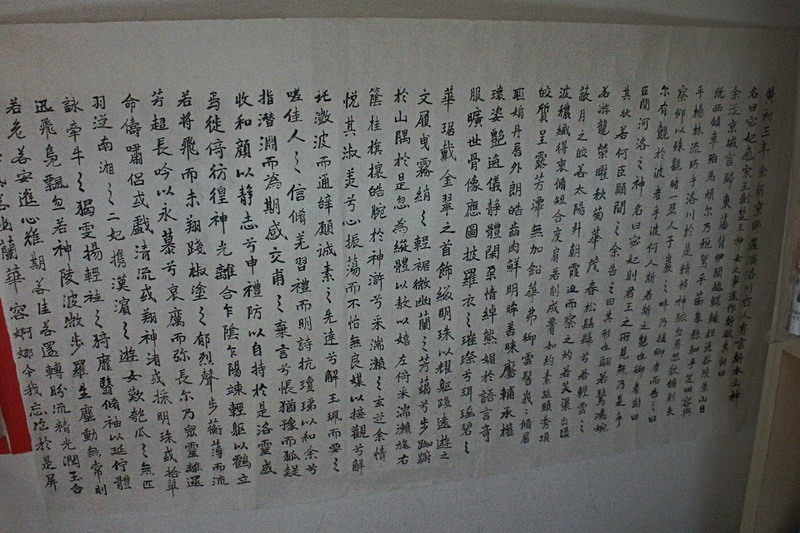 黃初三年余朝京師還濟洛川古人有言斯水之神
名曰宓妃感宋玉對楚王神女之事遂作斯賦其詞曰
余從京域言歸東藩背伊闕越轘轅經通谷陵景山日
既西傾車殆馬煩爾乃稅駕乎蘅皋秣駟乎芝田容與
乎楊林流眄乎洛川於是精移神駭忽焉思散俯則未
察仰以殊觀睹一麗人于巖之畔乃援御者而告之曰
爾有覿於彼者乎彼何人斯若斯之艷也御者對曰
臣聞河洛之神名曰宓妃則君王之所見無乃是乎
其狀若何臣願聞之余告之曰其形也翩若驚鴻婉
若游龍榮曜秋菊華茂春松髣髴兮若輕雲之
蔽月之皎若太陽升朝霞迫而察之灼若芙蕖出淥
波穠纖得衷脩短合度肩若削成腰如約素延頸秀項
皓質呈露芳澤無加鉛華弗御雲髻峩峩脩眉
聯娟丹唇外朗皓齒內鮮明眸善睞靨輔承權
瓌姿艷逸儀靜體閑柔情綽態媚於語言奇
服曠世骨像應圖披羅衣之璀璨兮珥瑤碧之
華琚戴金翠之首飾綴明珠以耀軀踐遠遊之
文履曳霧綃之輕裾微幽蘭之芳藹兮步踟躕
於山隅於是忽焉縱體以敖以嬉左倚采旄右
蔭桂旗攘皓腕於神滸兮采湍瀨之玄芝余情
悅其淑美兮心振蕩而不怡無良媒以接歡兮解
託微波而通辭願誠素之先達兮解玉珮而要之
嗟佳人之信脩羌習禮而明詩抗瓊珶以和余兮
指潛淵而為期感交甫之棄言兮悵猶豫而狐疑
收和顏以靜志兮申禮防以自持於是洛靈感
焉徙倚彷徨神光離合乍陰乍陽竦輕軀以鶴立
若將飛而未翔踐椒塗之郁烈步蘅薄而流
芳超長吟以永慕兮聲哀厲而彌長爾乃眾靈雜遝
命儔嘯侶或戲清流或翔神渚或採明珠或拾翠
羽從南湘之二妃攜漢濱之遊女歎匏瓜之無匹
詠牽牛之獨處揚輕袿之猗靡翳脩袖以延佇體
迅飛鳧飄忽若神陵波微步羅生塵動無常則
若危若安進止難期若往若還轉盼流精光潤玉
幽蘭華容婀娜令我忘飡於是屏